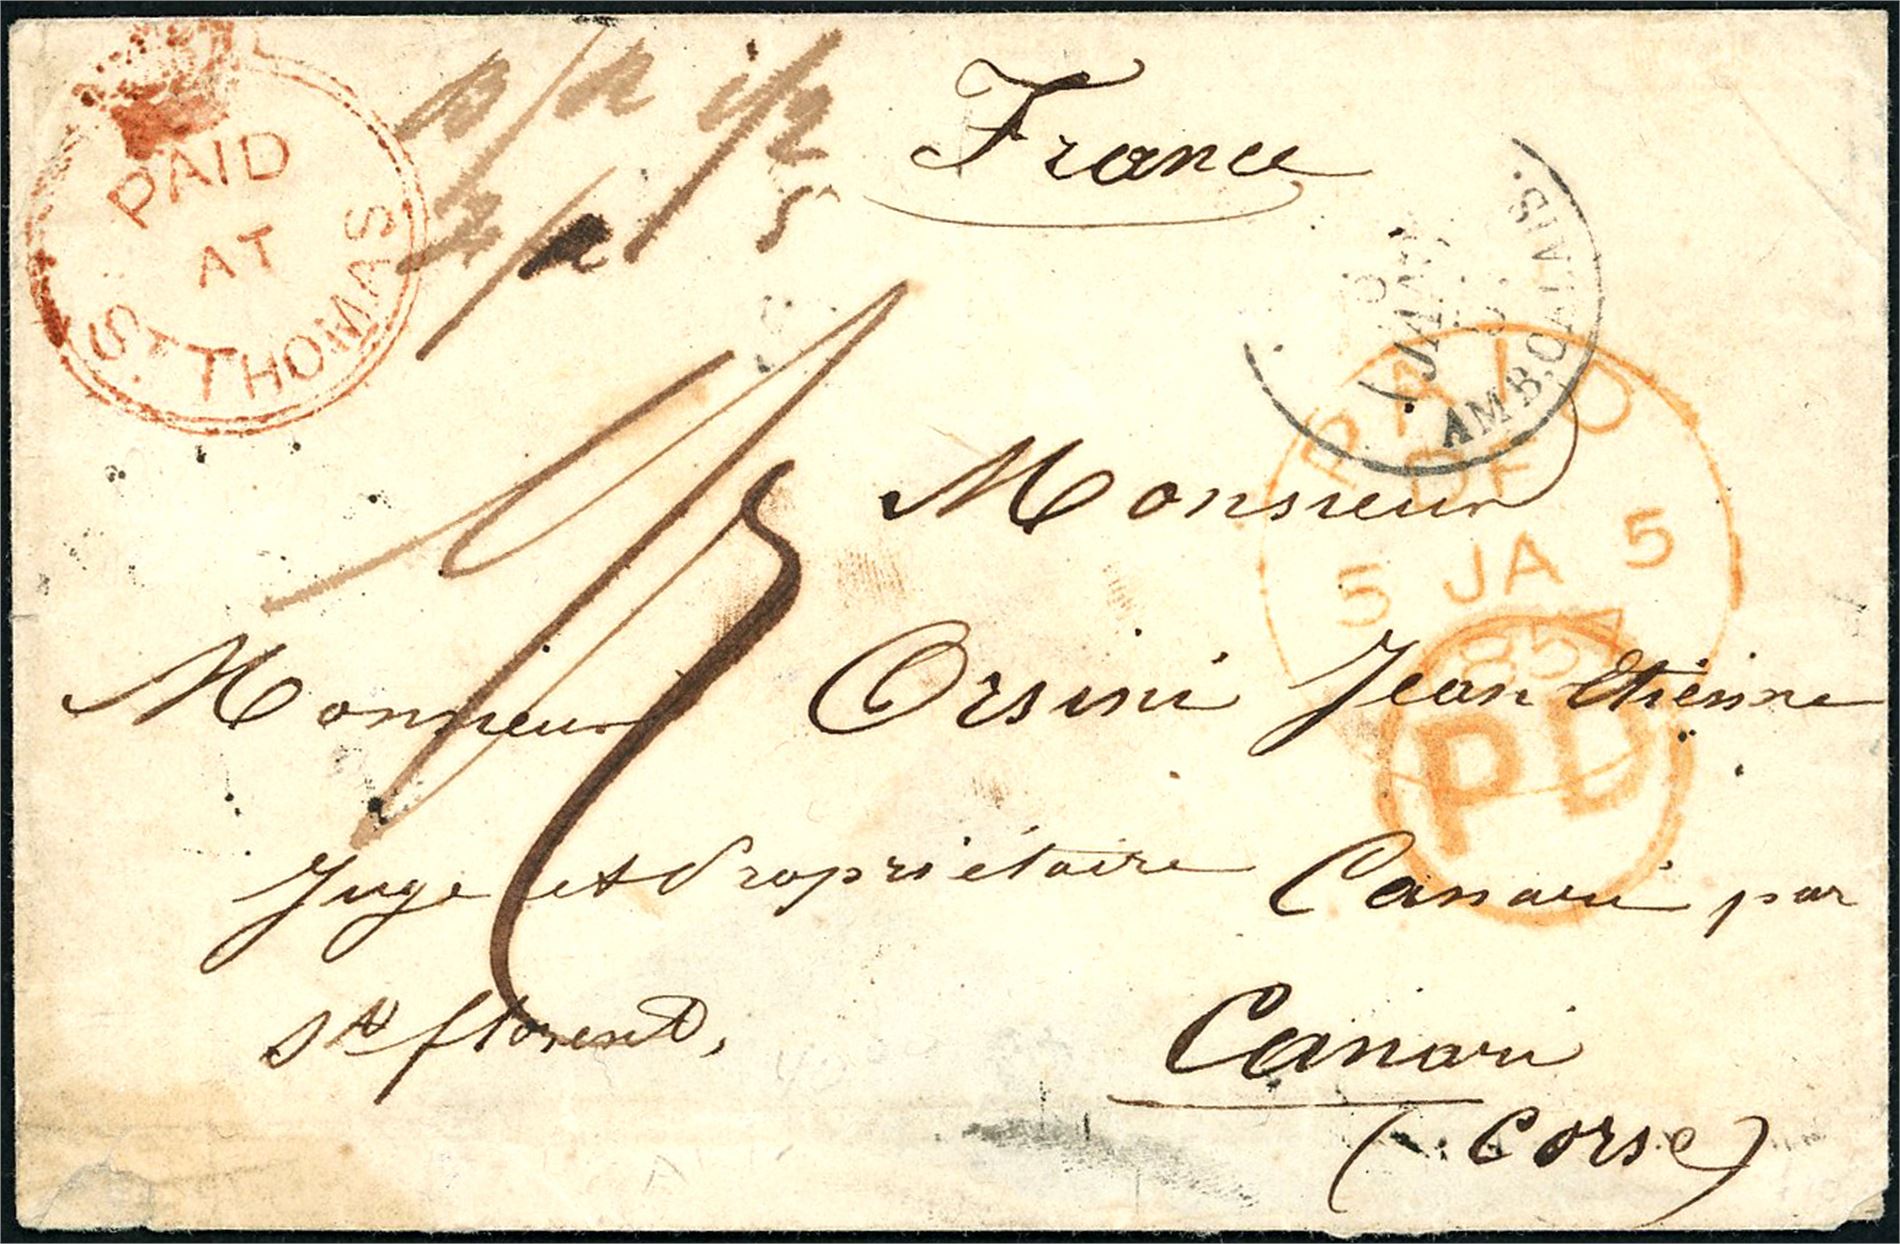 PAID
AT
ST. THOMAS
1/2
5
France
AMB. CALAIS.
JANV
PAID
5 JA 5
1857
PD
Monsieur
Monsieur Orsini Jean Etienne
Juge et Propriétaire Canari par
St florent,
Canari
(Corse)